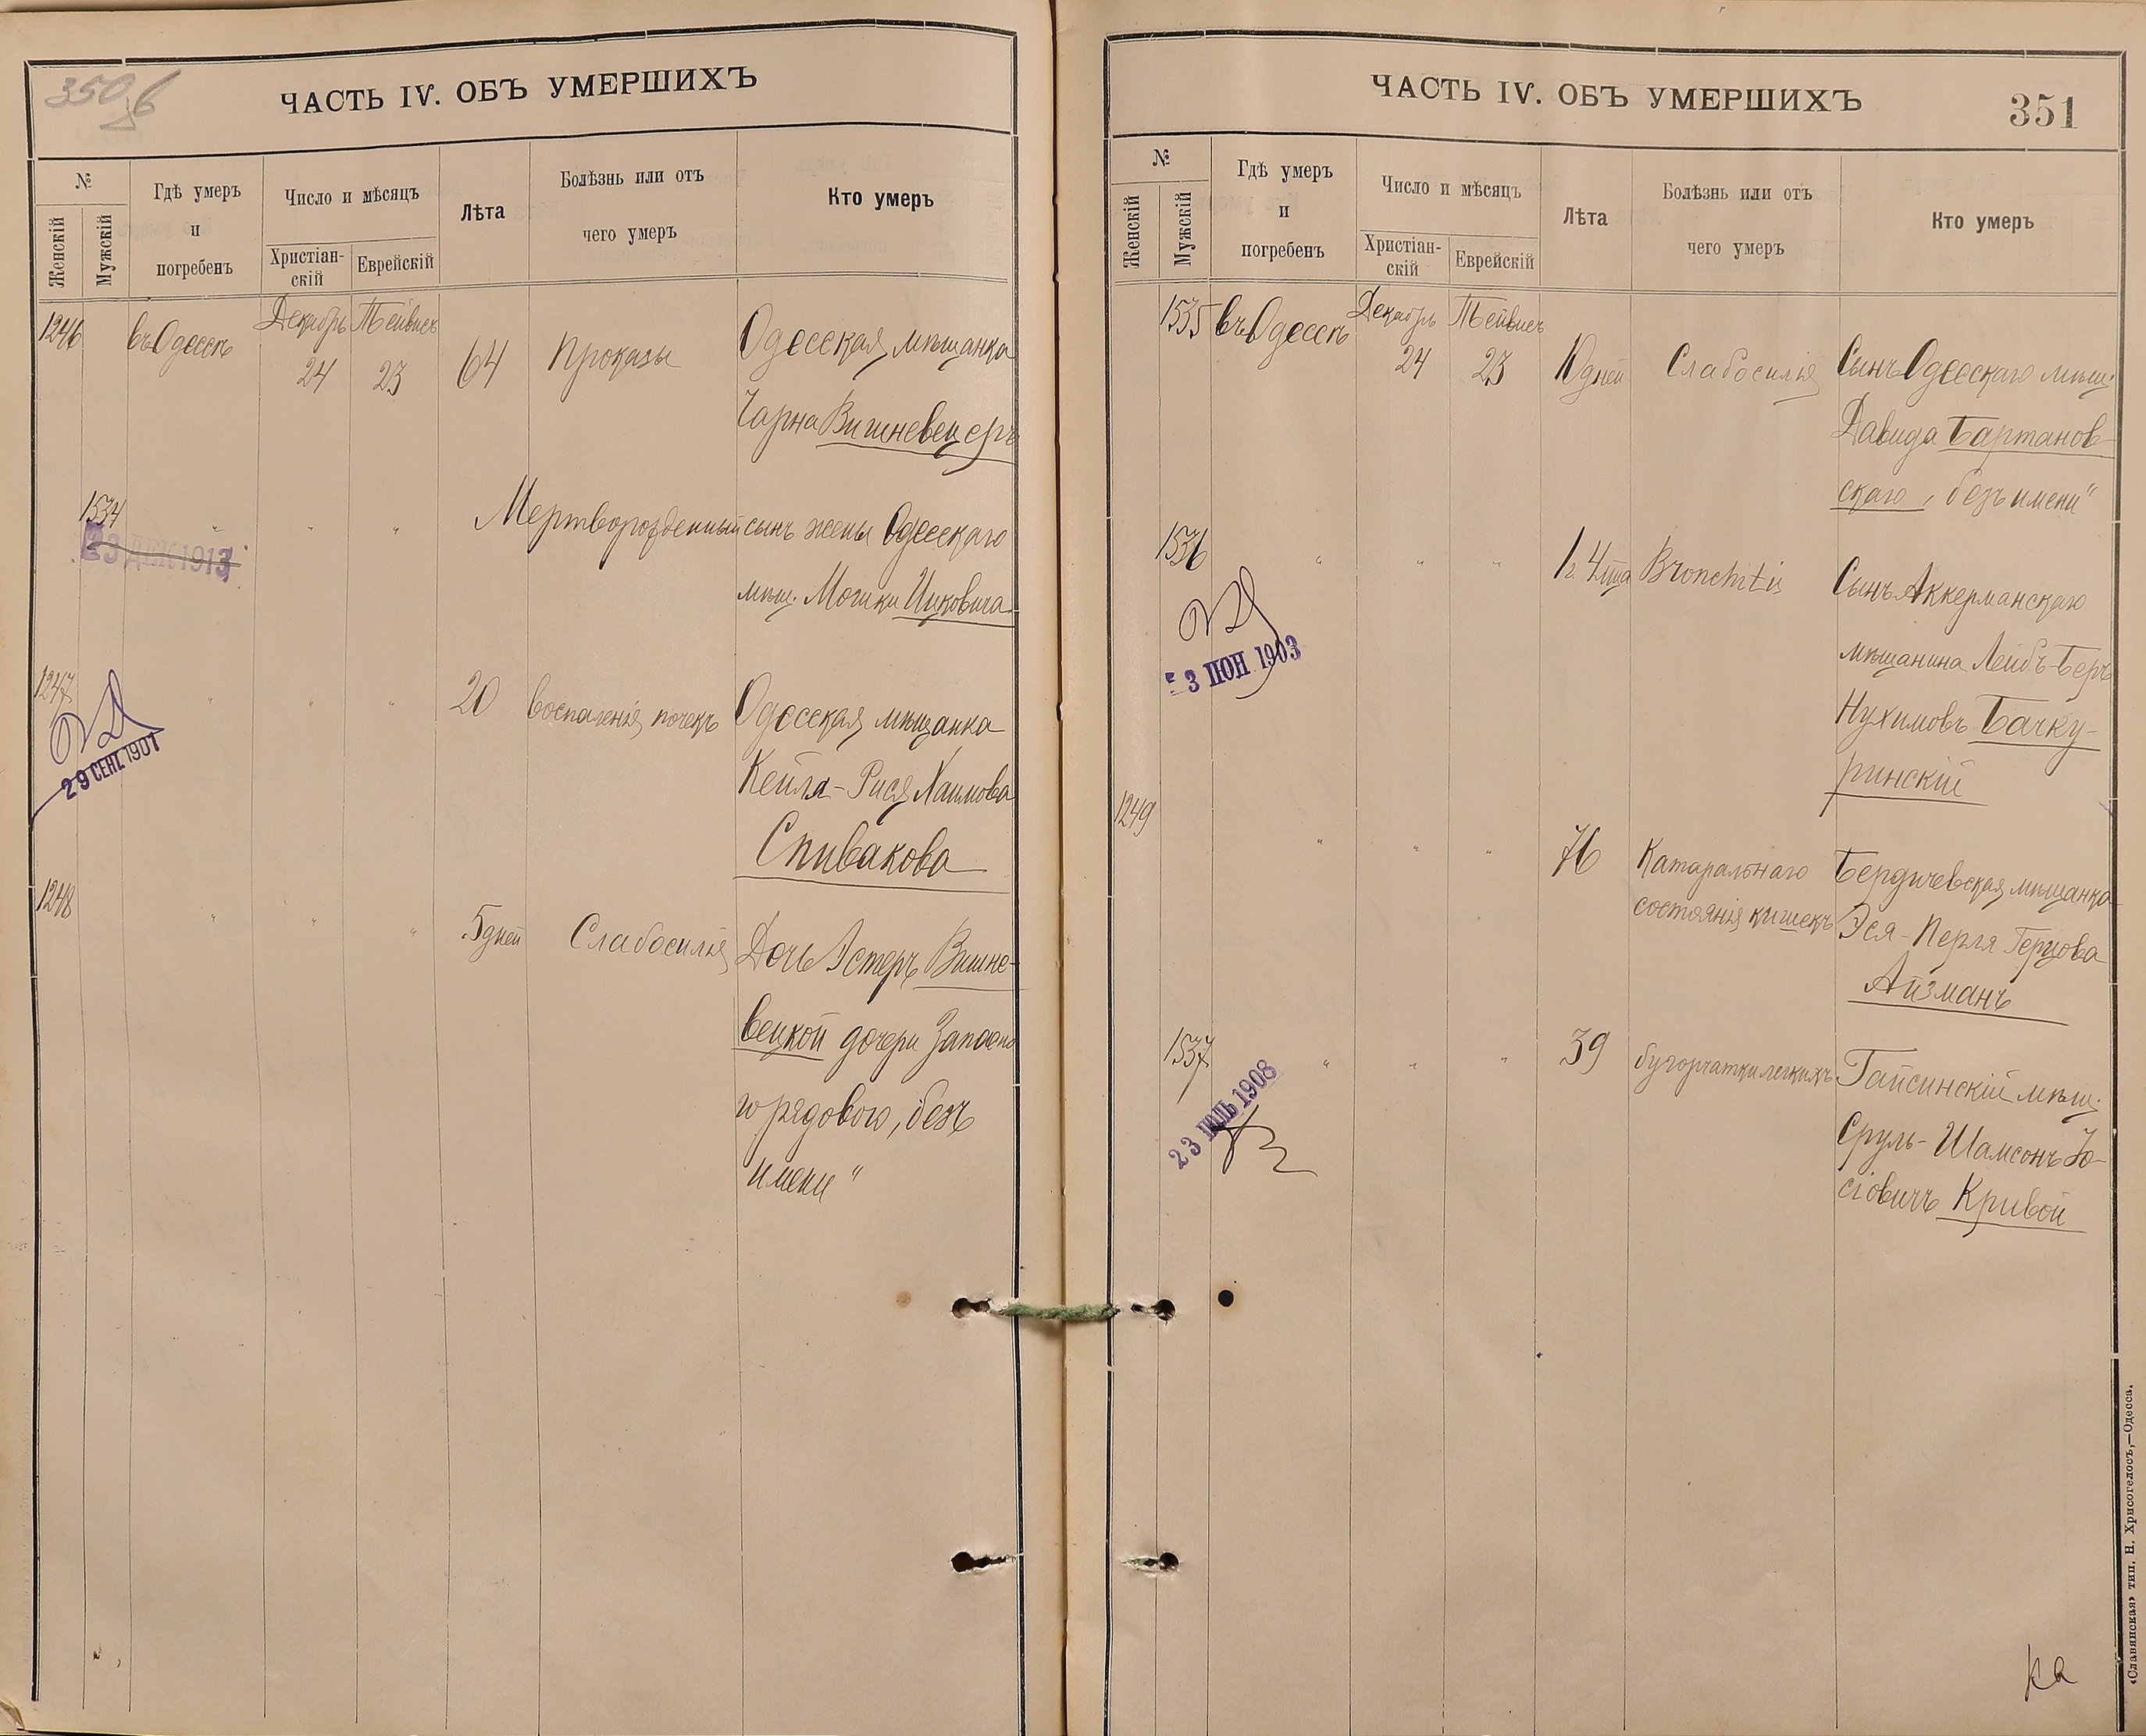 350 б
ЧАСТЬ IV. ОБЪ УМЕРШИХЪ
№
Женскій
Мужскій
Гдѣ умеръ
и
погребенъ
Число и мѣсяцъ
Христіан-
скій
Еврейскій
Лѣта
Болѣзнь или отъ
чего умеръ
Кто умеръ
1246 въ Одессѣ Декабрь Тейвисъ
24 23 64 Проказы Одесская мѣщанка
Чарна Вишневецеръ
1534 " " " Мертворожденный сынъ жены Одесскаго
23 ДЕК 1913
мѣщ. Мошки Ицковича
1247 " " " 20 воспаленія почекъ Одесская мѣщанка
29 СЕН. 1901
Кейла-Рися Хаимова
Спивакова
1248 " " " 5 дней Слабосилія Дочь Эстеръ Вишне-
вецкой дочери Запасна
го рядового, „безъ
имени"
ЧАСТЬ IV. ОБЪ УМЕРШИХЪ
351
№
Женскій
Мужскій
Гдѣ умеръ
и
погребенъ
Число и мѣсяцъ
Христіан-
скій
Еврейскій
Лѣта
Болѣзнь или отъ
чего умеръ
Кто умеръ
1535 въ Одессѣ Декабрь Тейвисъ
24 23 10 дней Слабосилія Сынъ Одесскаго мѣщ.
Давида Бартанов-
скаго „безъ имени"
1536 " " " 1 г. 4 м-ца Bronchitis Сынъ Аккерманскаго
3 ІЮН 1903
мѣщанина Лейбъ-Беръ
Нухимовъ Бачку-
ринскій
1249 " " " 76 Катаральнаго Бердичевская мѣщанка
состоянія кишекъ Эся-Перля Герцова
Айзманъ
1537 " " " 39 бугорчатки легкихъ Гайсинскій мѣщ.
23 ІЮЛЬ 1908
Сруль-Шамсонъ Іо-
сіовичъ Кривой
«Славянская» тип. Н. Хрисогелосъ,—Одесса.